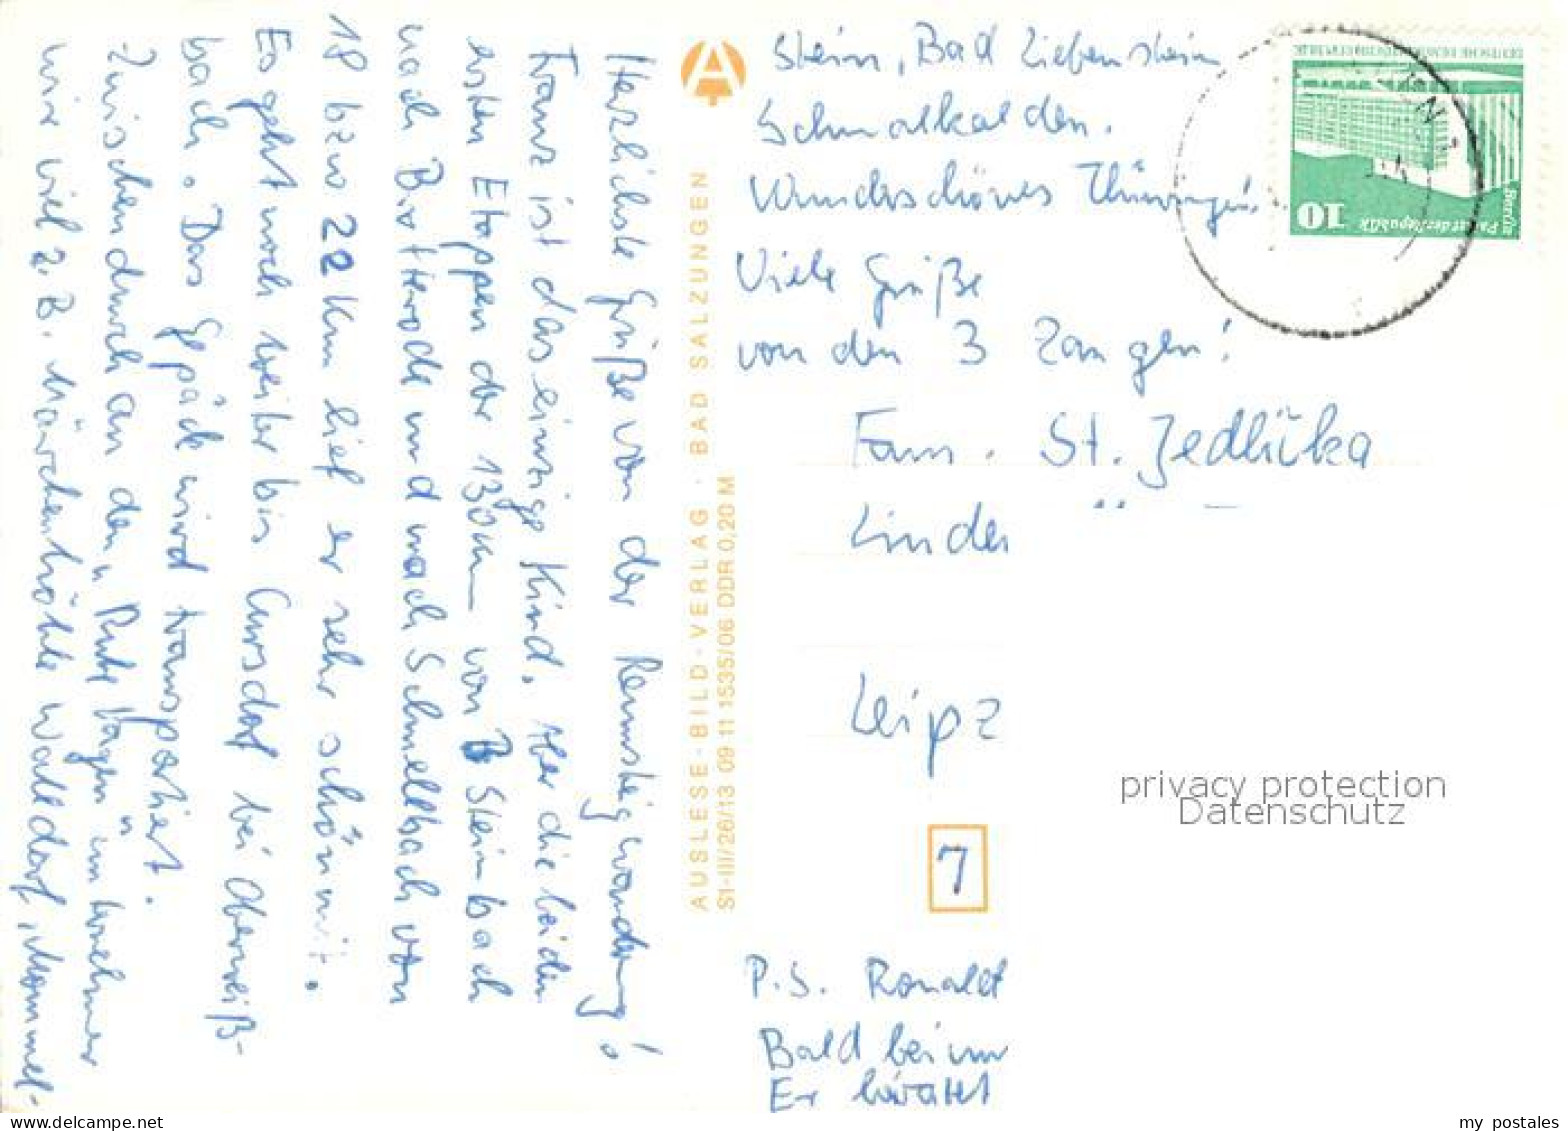 Herzlichste Grüße von der Rennsteigwanderung!
Franz ist das einzige Kind. Aber die beiden
ersten Etappen der 130km von Steinbach
nach Brotterode und nach Schnellbach von
18 bzw 22 km lief er sehr schön mit.
Es geht noch weiter bis Cursdorf bei Oberweiß-
bach. Das Gepäck wird transportiert.
Zwischendurch an den "Ruhetagen" unternehmen
wir viel z.B. Märchenhöhle Walldorf, Mommel-
stein, Bad Liebenstein
Schmalkalden.
Wunderschönes Thüringen!
Viele Grüße
von den 3 Zangen!
Fam. St. Jedlička
Linden
Leipz
7
P.S. Ronald
Bald bei
Er
AUSLESE-BILD-VERLAG · BAD SALZUNGEN
SI-III/26/13 09 11 1535/06 DDR 0,20 M
10
Berlin
Palast der Republik
privacy protection
Datenschutz
my postales